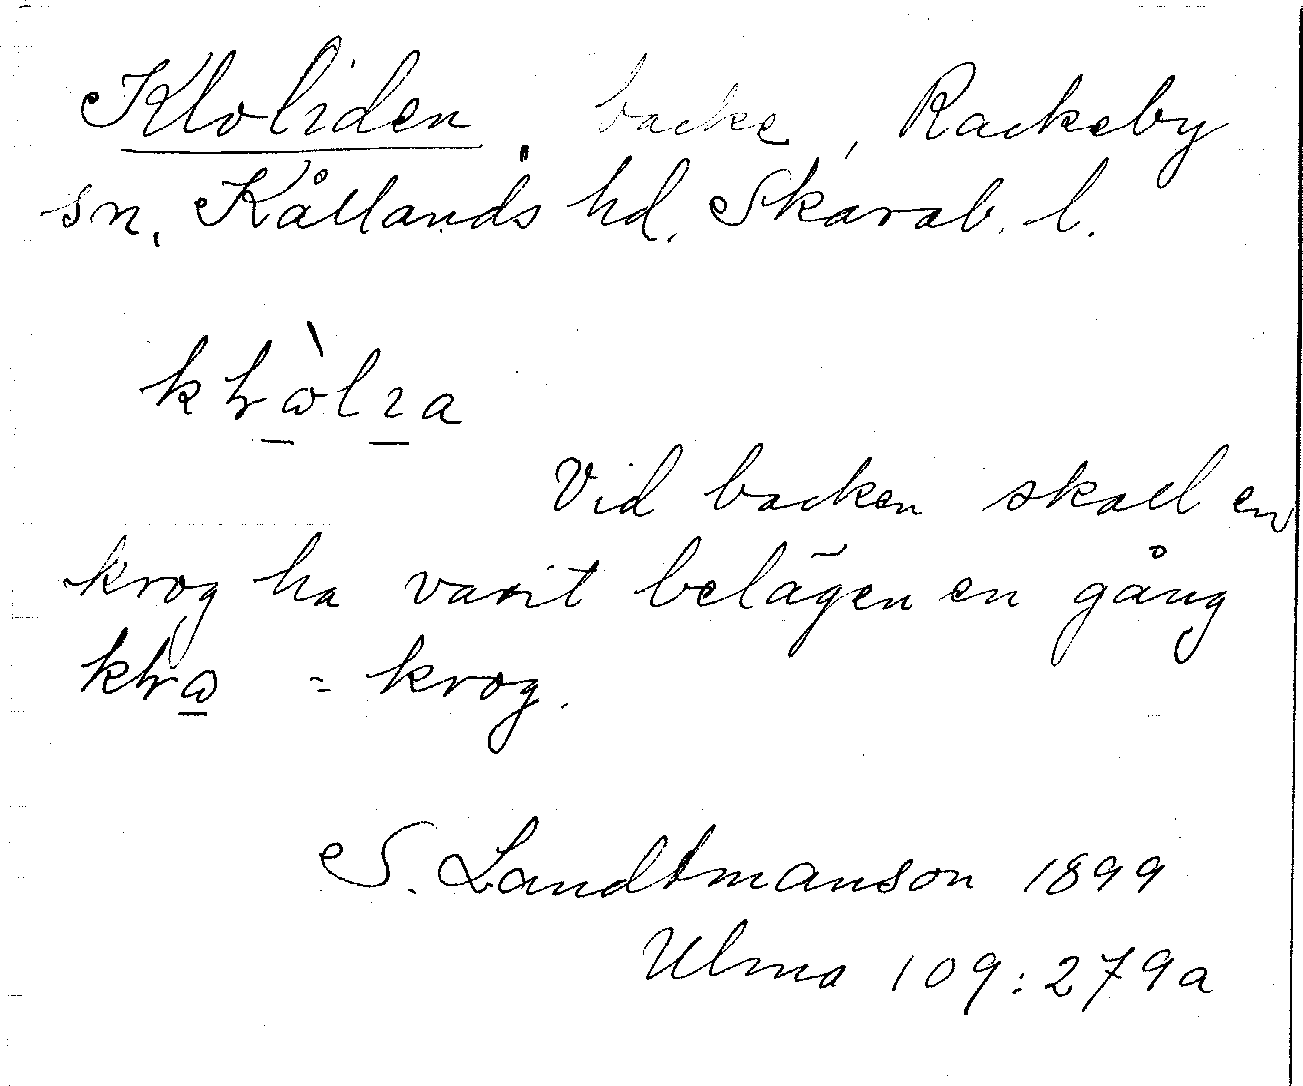 Kloliden, backe, Rackeby
sn, Kållands hd. Skarab. l.
Vid backen skall en
krog ha varit belägen en gång
= krog.
S. Landtmanson 1899
Ulma 109:279a